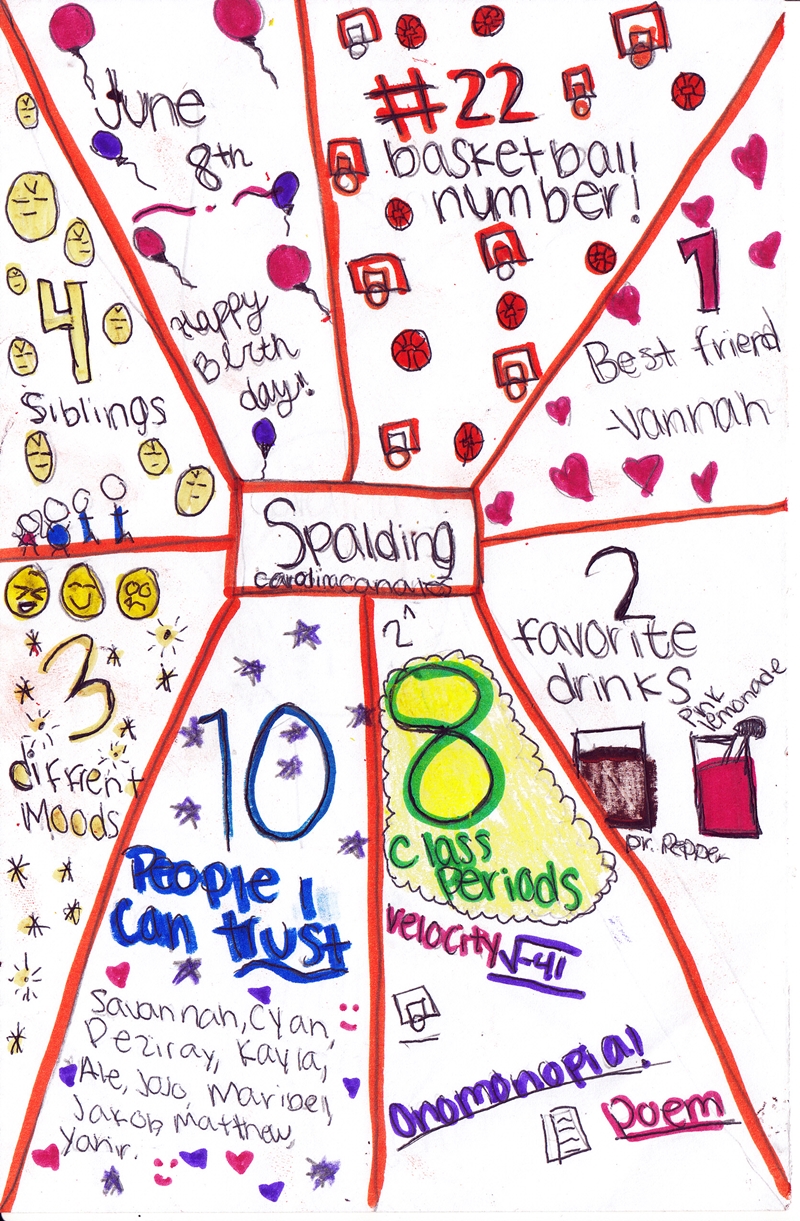 June
8th
Happy
Birth
day!!
#22
basketball
number!
1
Best friend
-Vannah
4
Siblings
Spalding
2
favorite
drinks
Pink
lemonade
Dr. Pepper
3
diffrent
Moods
10
People I
can trust
Savannah, Cyan,
Deziray, Kayla,
Ale, JoJo, Maribel,
Jakob, Matthew,
Yanir.
2^
8
class
periods
velocity √-41
onomonopia!
Poem